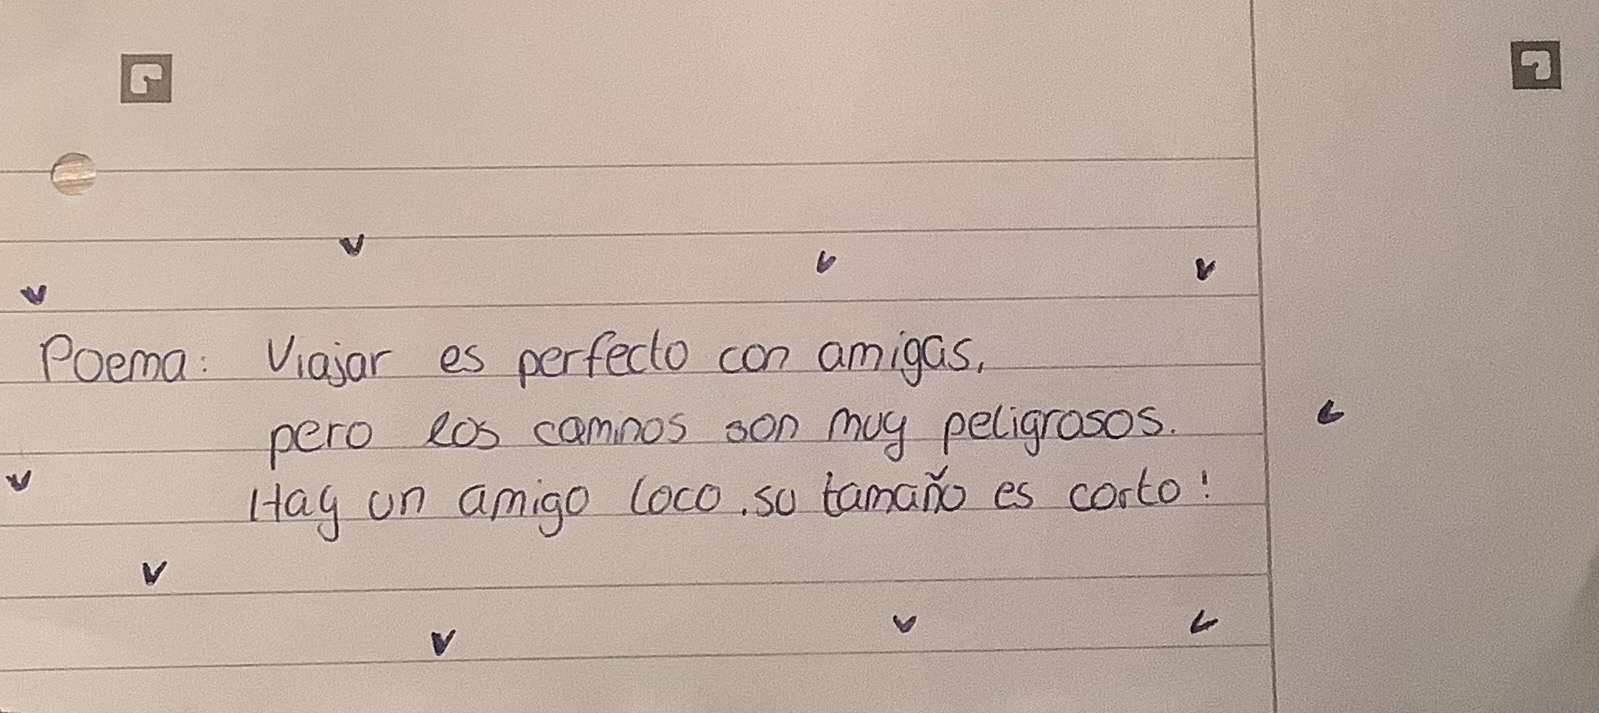 Poema: Viajar es perfecto con amigas,
pero los caminos son muy peligrosos.
Hay un amigo loco. su tamaño es corto!